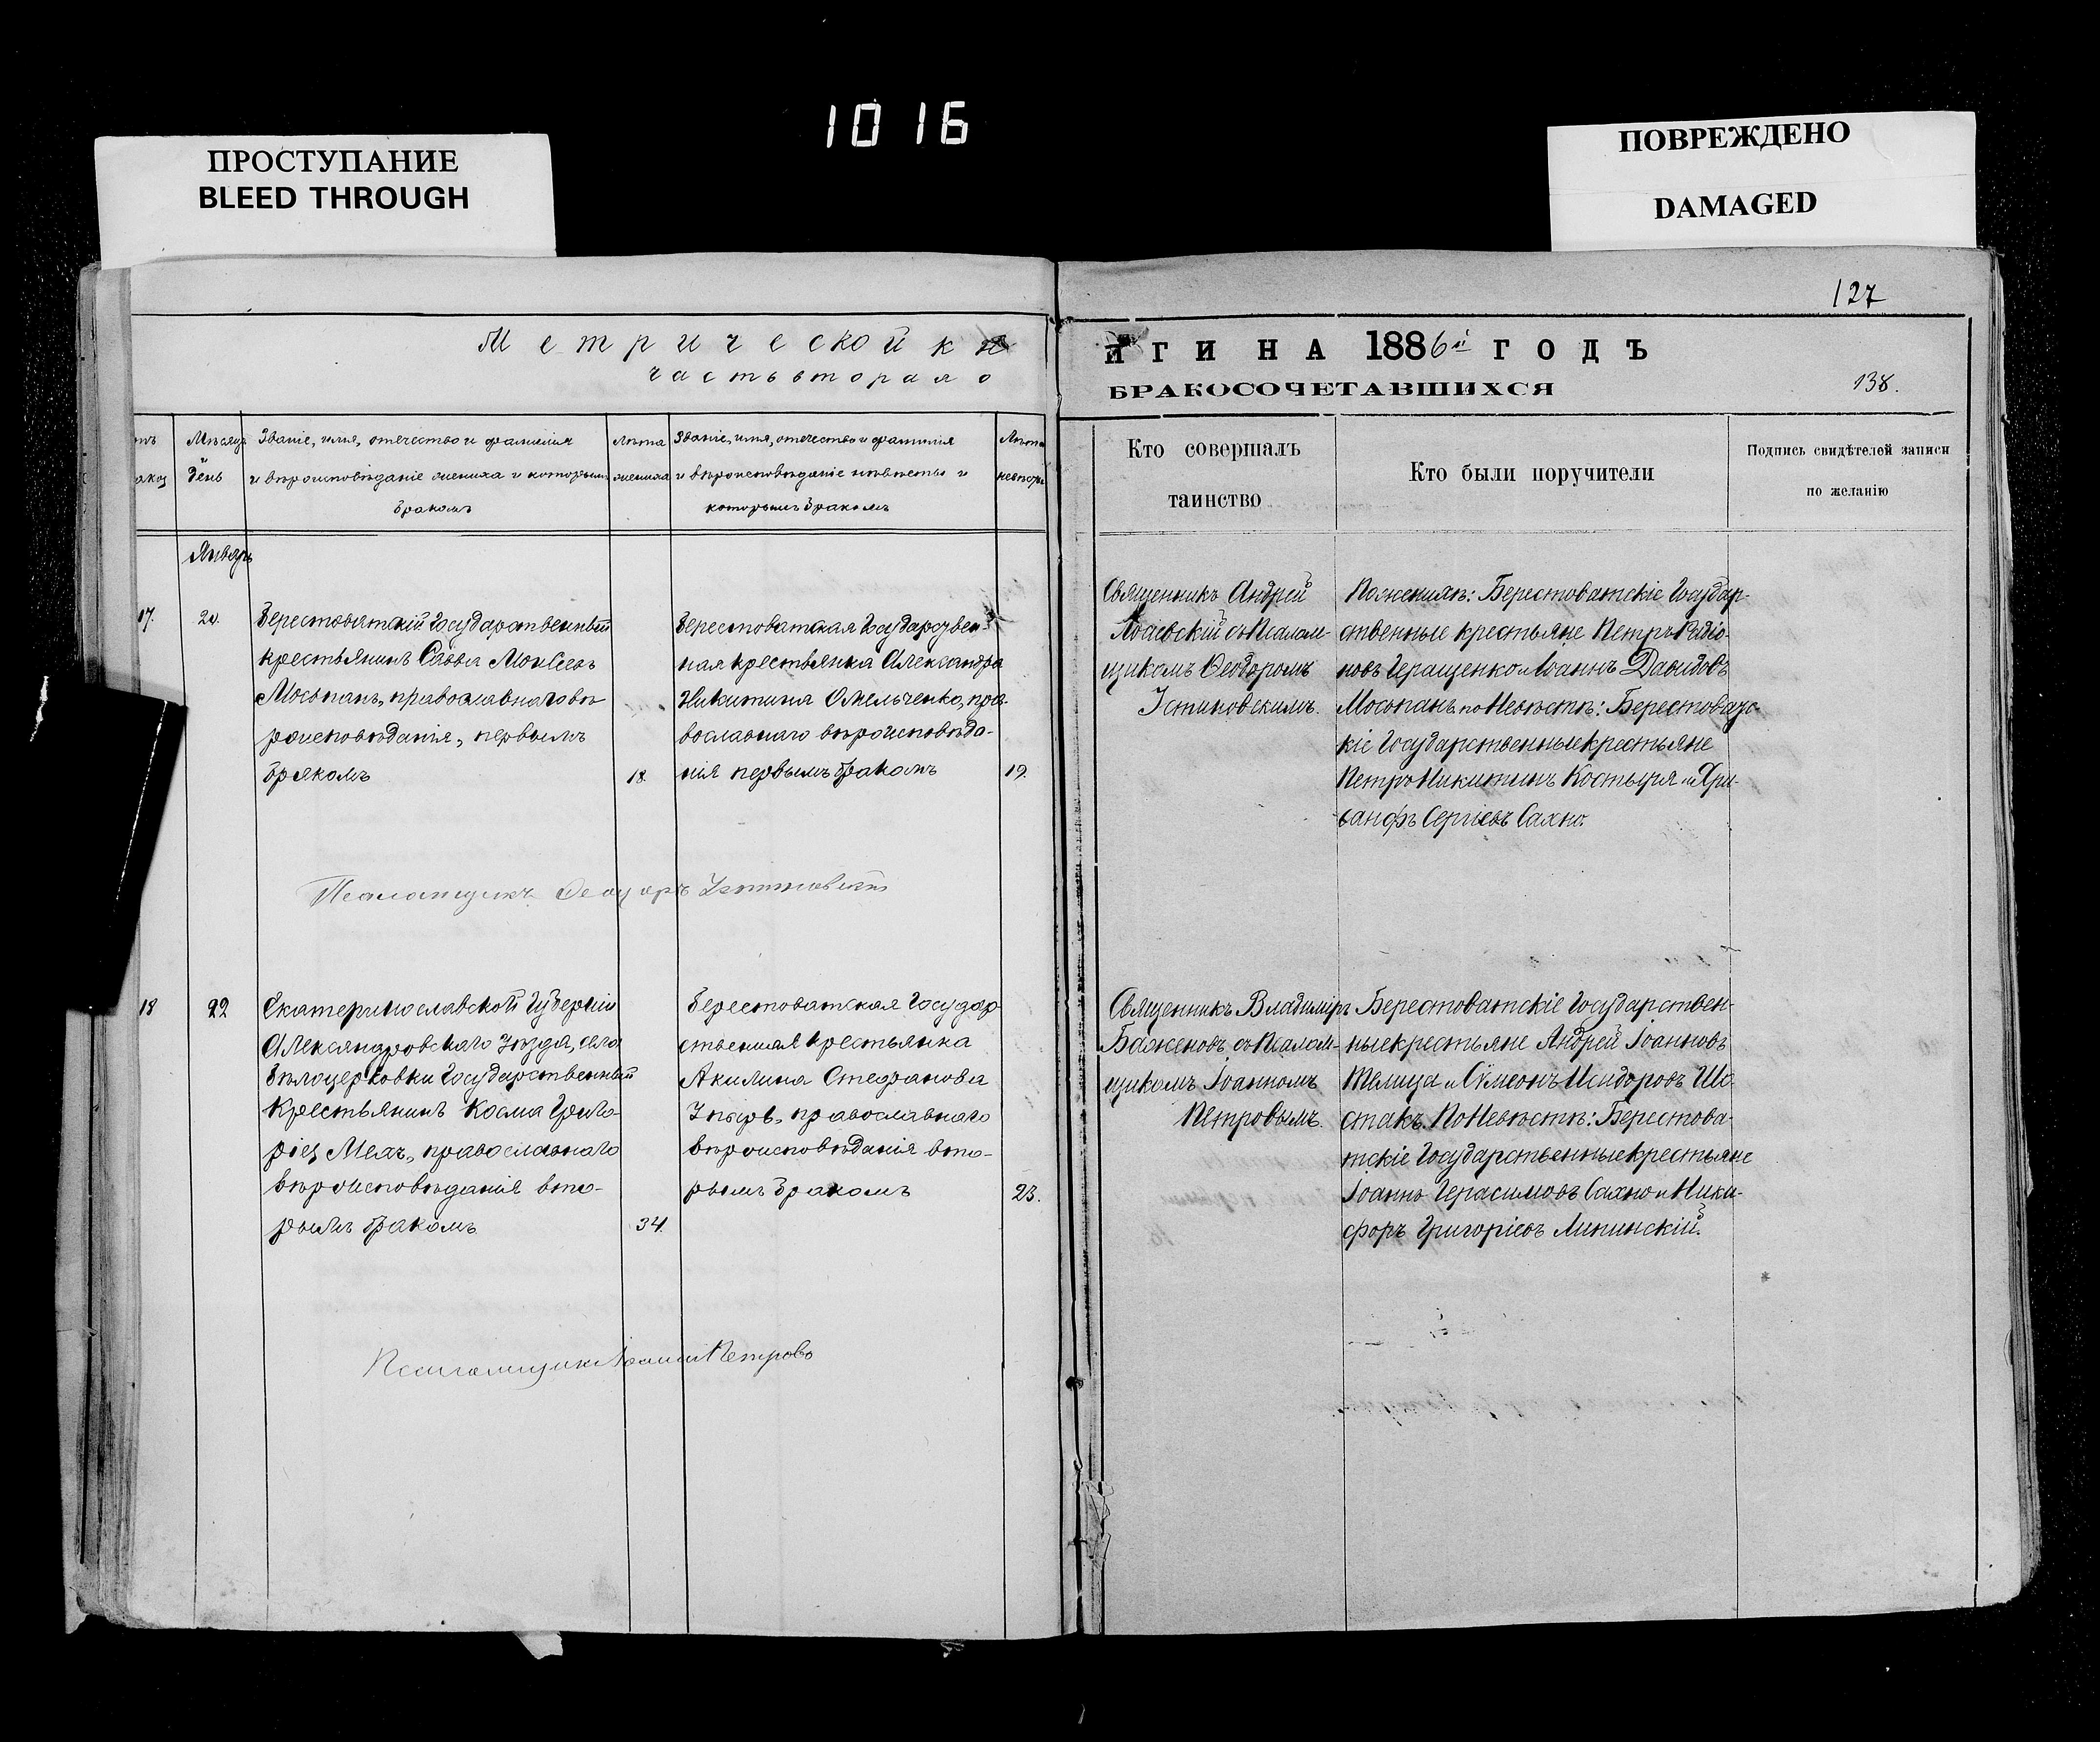 1016
ПРОСТУПАНИЕ
BLEED THROUGH
ПОВРЕЖДЕНО
DAMAGED
127
Метрической кн
часть вторая о
ИГИ НА 1886й ГОДЪ
БРАКОСОЧЕТАВШИХСЯ
138.
Мѣсяцъ
день
Званіе, имя, отечество и фамилія
и вѣроисповѣданіе жениха и которымъ
бракомъ
Лѣта
жениха
Званіе, имя, отечество и фамилія
и вѣроисповѣданіе невѣсты и
которымъ бракомъ
Лѣта
невѣсты
Кто совершалъ
таинство
Кто были поручители
Подпись свидѣтелей записи
по желанію
Январь
17.
20.
Берестоватскій Государственный
крестьянинъ Савва Моисеевъ
Мосьпанъ, православнаго вѣ
роисповѣданія, первымъ
бракомъ
18.
Берестоватская Государствен-
ная крестьянка Александра
Никитина Омельченко, пра-
вославнаго вѣроисповѣда-
нія первымъ бракомъ
19.
Священникъ Андрей
съ Псалом-
щикомъ Ѳеодоромъ
Устиновскимъ.
По женихѣ: Берестоватскіе Государ-
ственные крестьяне Петръ Родіо-
новъ Геращенко и Іоаннъ Давидовъ
Мосьпанъ по Невѣстѣ: Берестоватс-
кіе Государственные крестьяне
Петръ Никитинъ Костыря и Хри-
санфъ Сергіевъ Сахно.
Псаломщикъ Ѳеодоръ Устиновскій
18
22
Екатеринославской Губерніи
Александровскаго Уѣзда, села
Бѣлоцерковки Государственный
Крестьянинъ Косма Григо-
ріевъ Мехъ, православнаго
вѣроисповѣданія вто-
рымъ бракомъ
34.
Берестоватская Государ-
ственная крестьянка
Акилина Стефанова
православнаго
вѣроисповѣданія вто-
рымъ бракомъ
23.
Священникъ Владиміръ
Баженовъ, съ Псалом-
щикомъ Іоанномъ
Петровымъ.
Берестоватскіе Государствен-
ные крестьяне Андрей Іоанновъ
Телица и Сѵмеонъ Исидоровъ Шо
стакъ. По Невѣстѣ: Берестова-
тскіе Государственные крестьяне
Іоаннъ Герасимовъ Сахно и Ники-
форъ Григоріевъ Липинскій.
Псаломщикъ Іоаннъ Петровъ